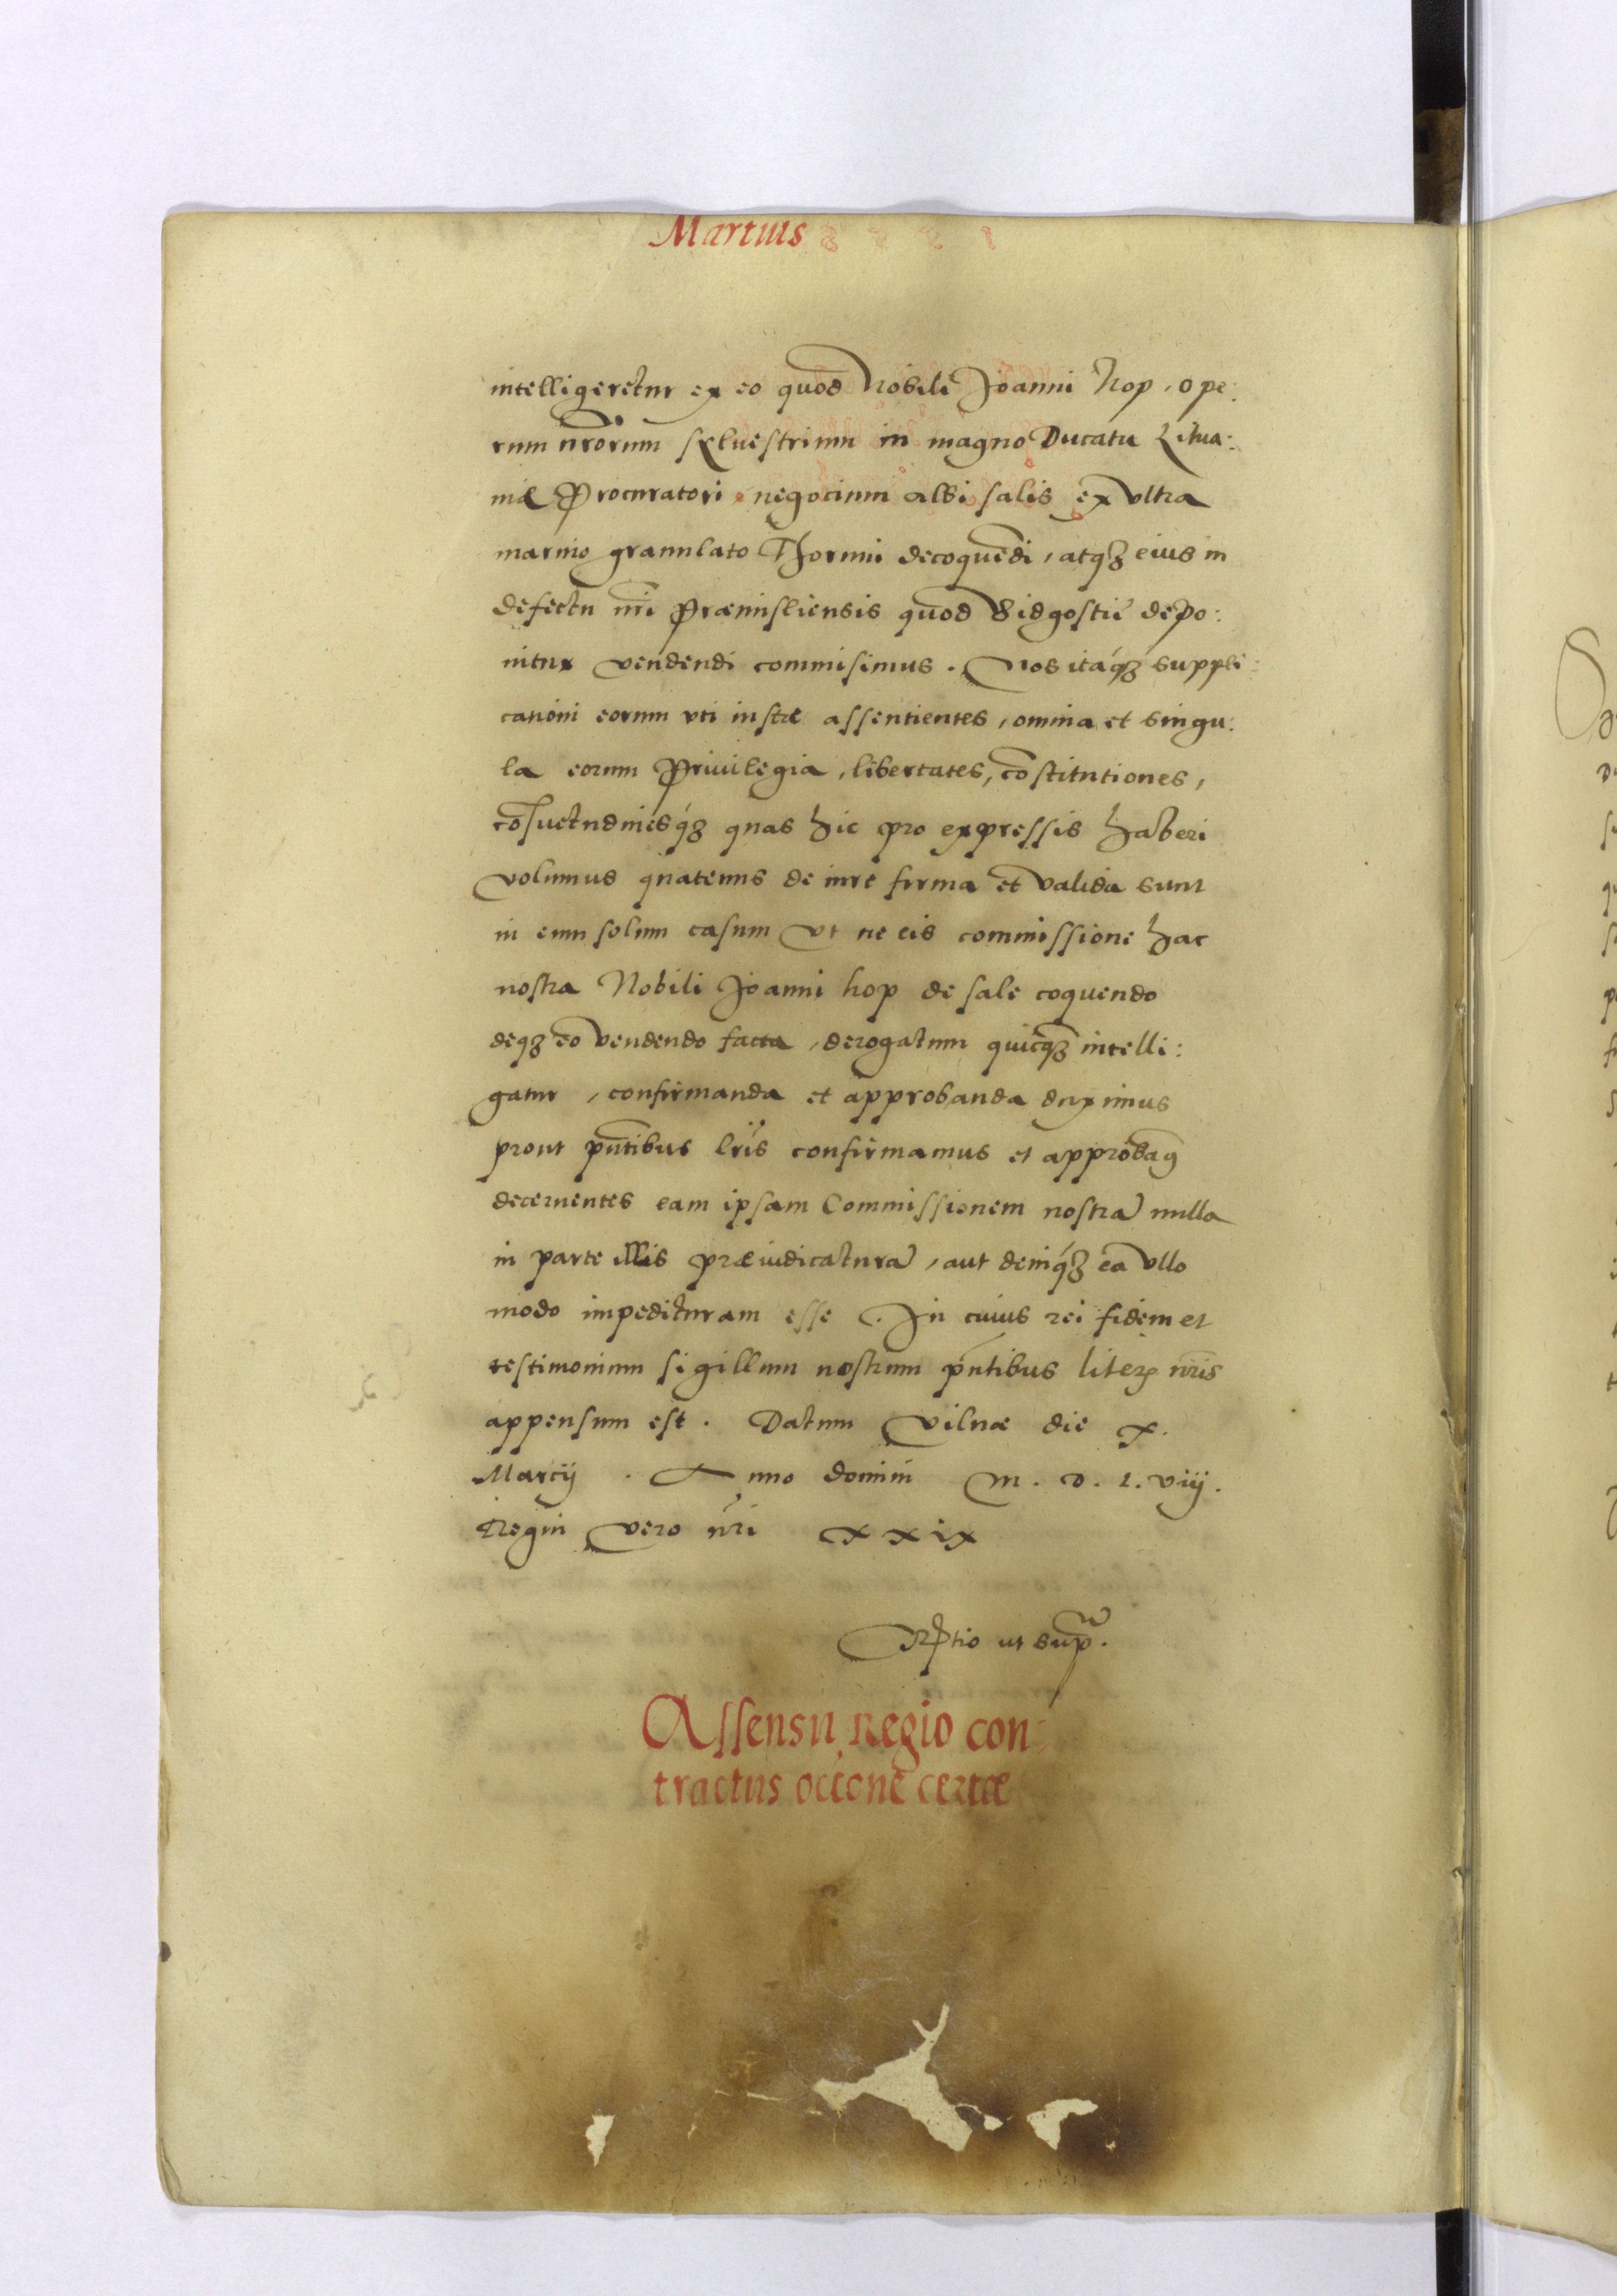 Martius
intelligeretur ex eo quod Nobili Joanni Hop, ope:
rum nr̃orum sylvestrium in magno Ducatu Litua:
niæ Procuratori negocium albi salis ex ultra
marino granulato Thorunii decoquẽdi, atq3 eius in
defectu nr̃i Præmisliensis quod Bidgostiẽ depo:
nitur vendendi commisimus. Nos itaq3 suppli:
cationi eorum uti iustæ assentientes, omnia et singu:
la eorum Privilegia, libertates, cõstitutiones,
cõsuetudinesq3 quas hic pro expressis haberi
volumus quatenus de iure firma et valida sunt
in eum solum casum ut ne eis commissione hac
nostra Nobili Joanni hop de sale coquendo
deq3 eo vendendo facta, derogatum quicq3 intelli:
gatur, confirmanda et approbanda duximus
prout pñtibus lr̃is confirmamus et approbam9
decernentes eam ipsam Commissionem nostrã nulla
in parte illis præiudicaturã, aut deniq3 eã ullo
modo impedituram esse. In cuius rei fidem et
testimonium sigillum nostrum pñtibus literꝭ nr̃is
appensum est. Datum Vilnæ die X.
Marcij. Anno domini M. D. L. viij.
Regni vero nr̃i xxix
Rẽptio ut supr̃.
Assensu regio con:
tractus occõne certæ